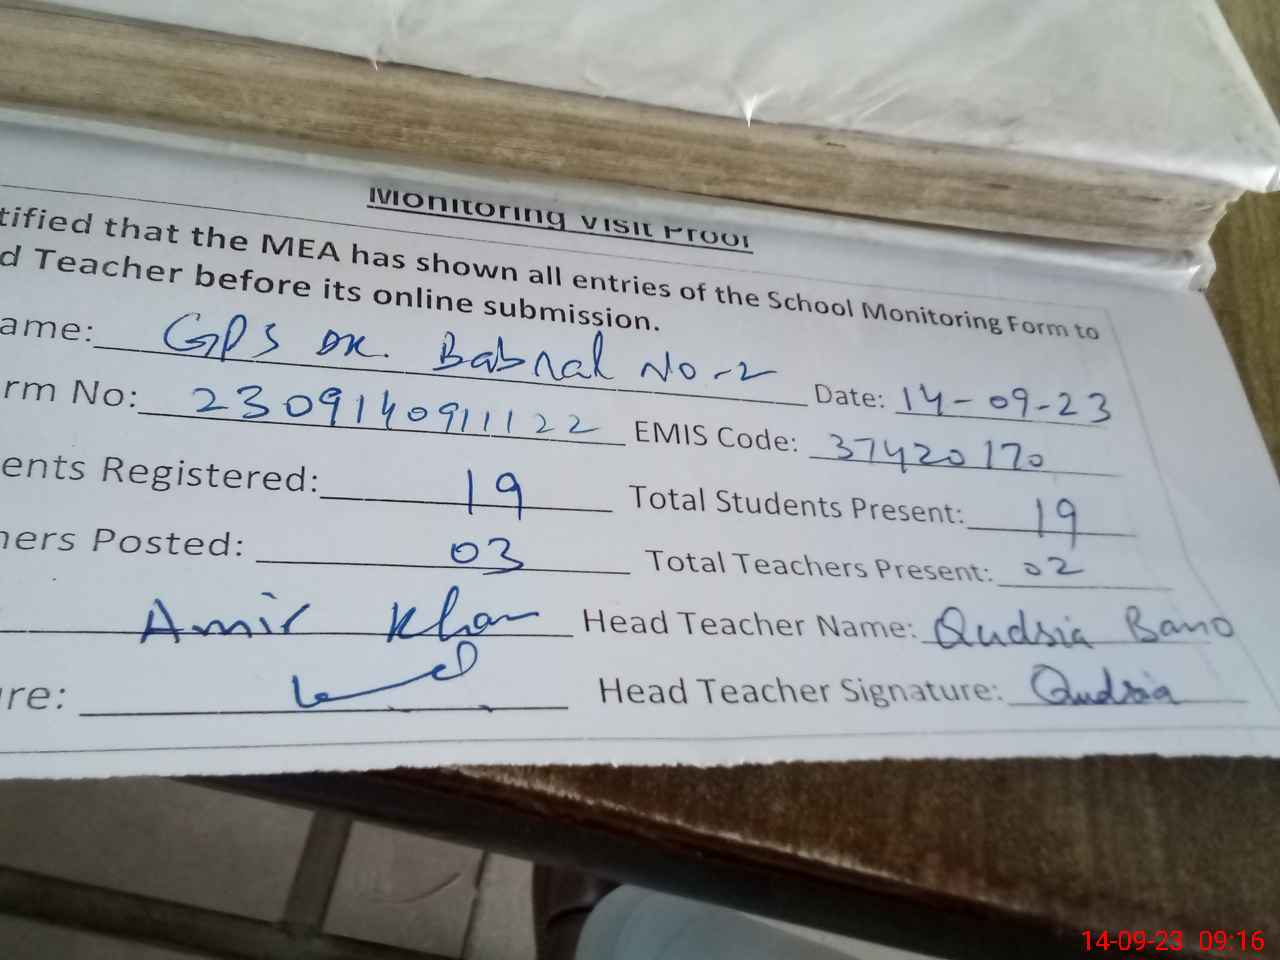 Monitoring Visit Proof
tified that the MEA has shown all entries of the School Monitoring Form to
d Teacher before its online submission.
ame: GPS DK. Babral No-2 Date: 14-09-23
rm No: 230914091122 EMIS Code: 37420170
ents Registered: 19 Total Students Present: 19
hers Posted: 03 Total Teachers Present: 02
Amir Khan Head Teacher Name: Qudsia Bano
re: Head Teacher Signature: Qudsia
14-09-23 09:16